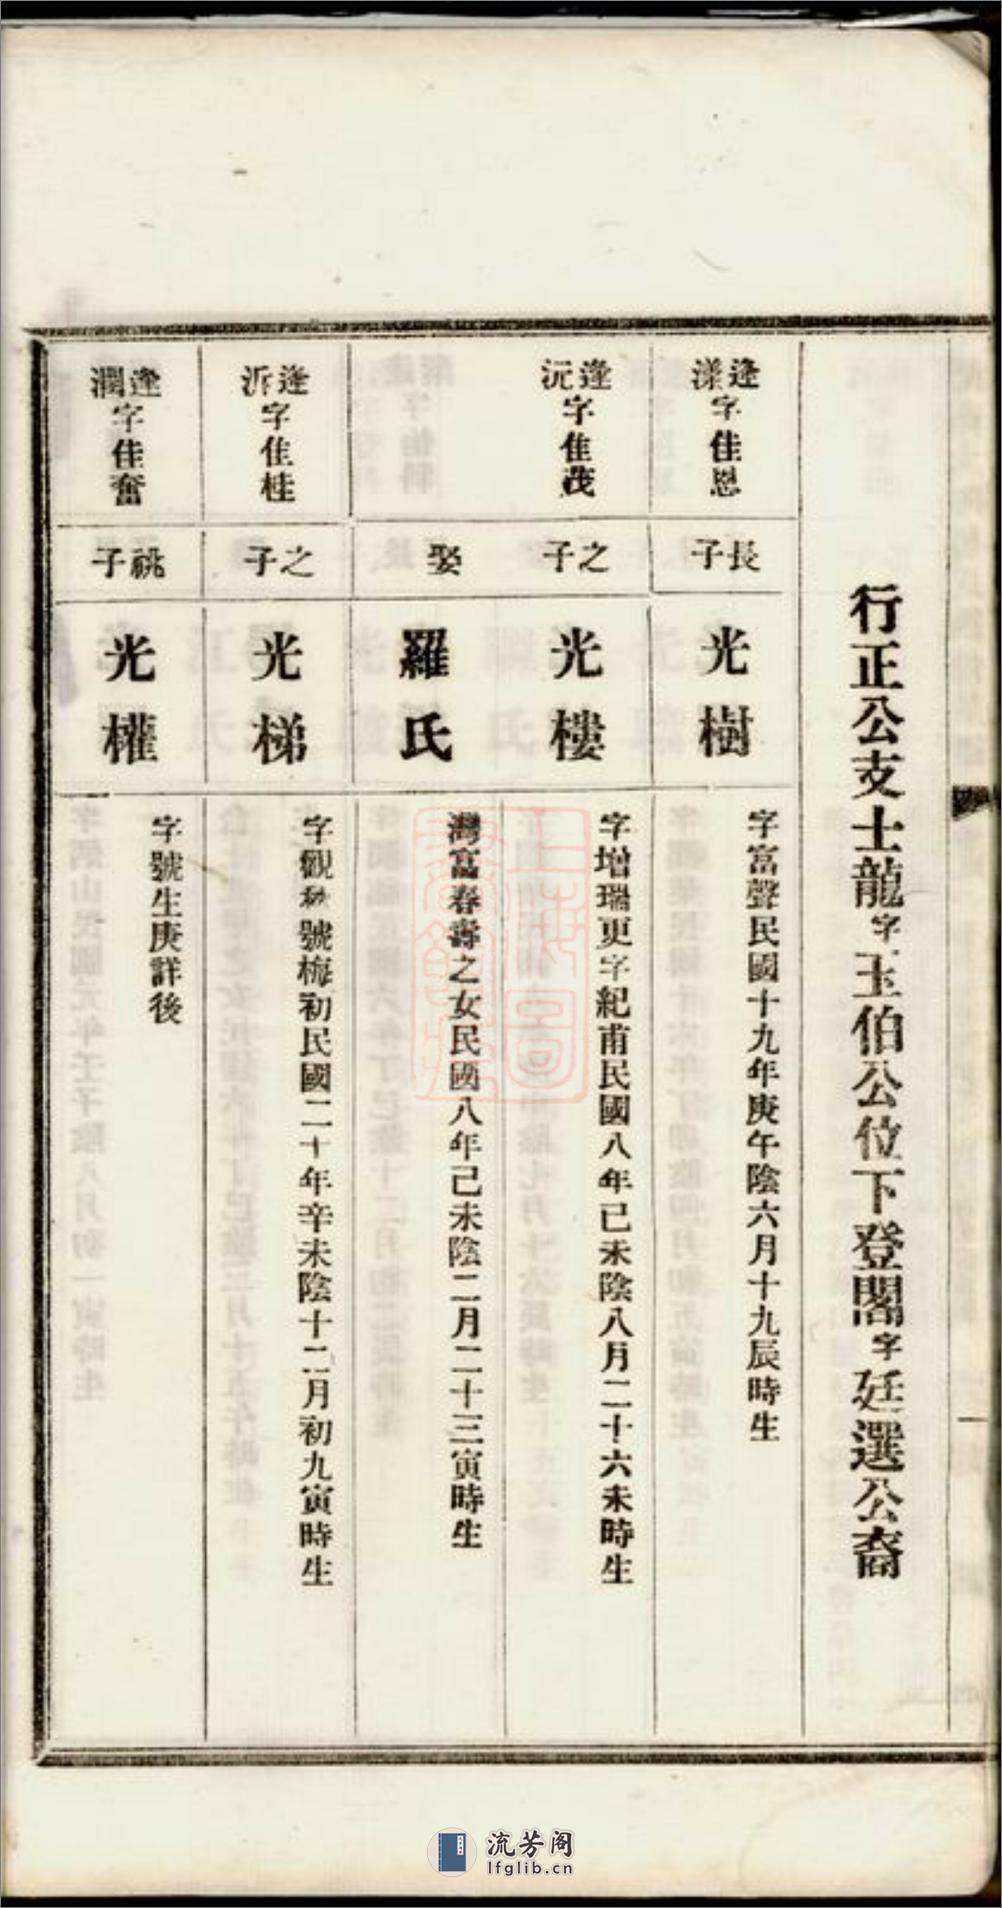 行正公支士龍字玉伯公位下登閣字廷選公裔
逢漾字佳恩
長子
光樹
字富聲民國十九年庚午陰六月十九辰時生
逢沅字佳茂
之子
光樓
字增瑞更字紀甫民國八年己未陰八月二十六未時生
娶
羅氏
灣富春壽之女民國八年己未陰二月二十三寅時生
逢泝字佳桂
之子
光梯
字觀秋號梅初民國二十年辛未陰十二月初九寅時生
逢潤字佳奮
祧子
光權
字號生庚詳後
流芳阁
lfglib.cn